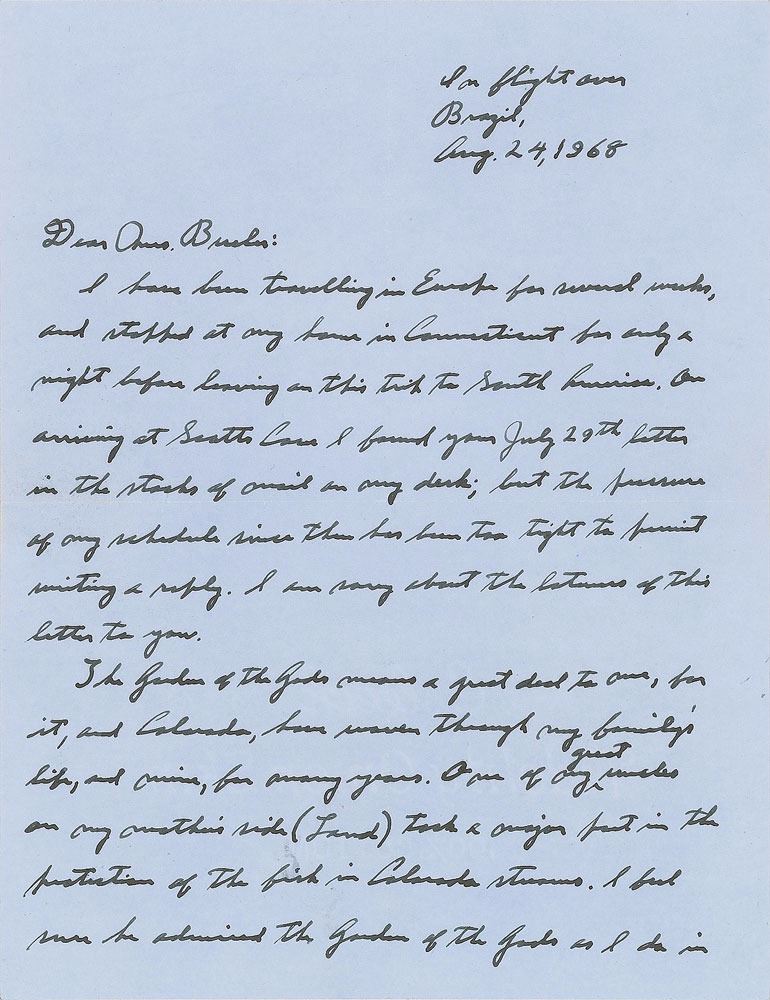 In flight over
Brazil,
Aug. 24, 1968
Dear Mrs.
I have been travelling in Europe for several weeks,
and stopped at my home in Connecticut for only a
night before leaving on this trip to South America. On
arriving at Scotts Cove I found your July 29th letter
in the stacks of mail on my desk; but the pressure
of my schedule since then has been too tight to permit
writing a reply. I am sorry about the lateness of this
letter to you.
The Garden of the Gods means a great deal to me, for
it, and Colorado, have woven through my family's
life, and mine, for many years. One of my great uncles
on my mother's side (Land) took a major part in the
protection of the fish in Colorado streams. I feel
sure he admired the Garden of the Gods as I do in